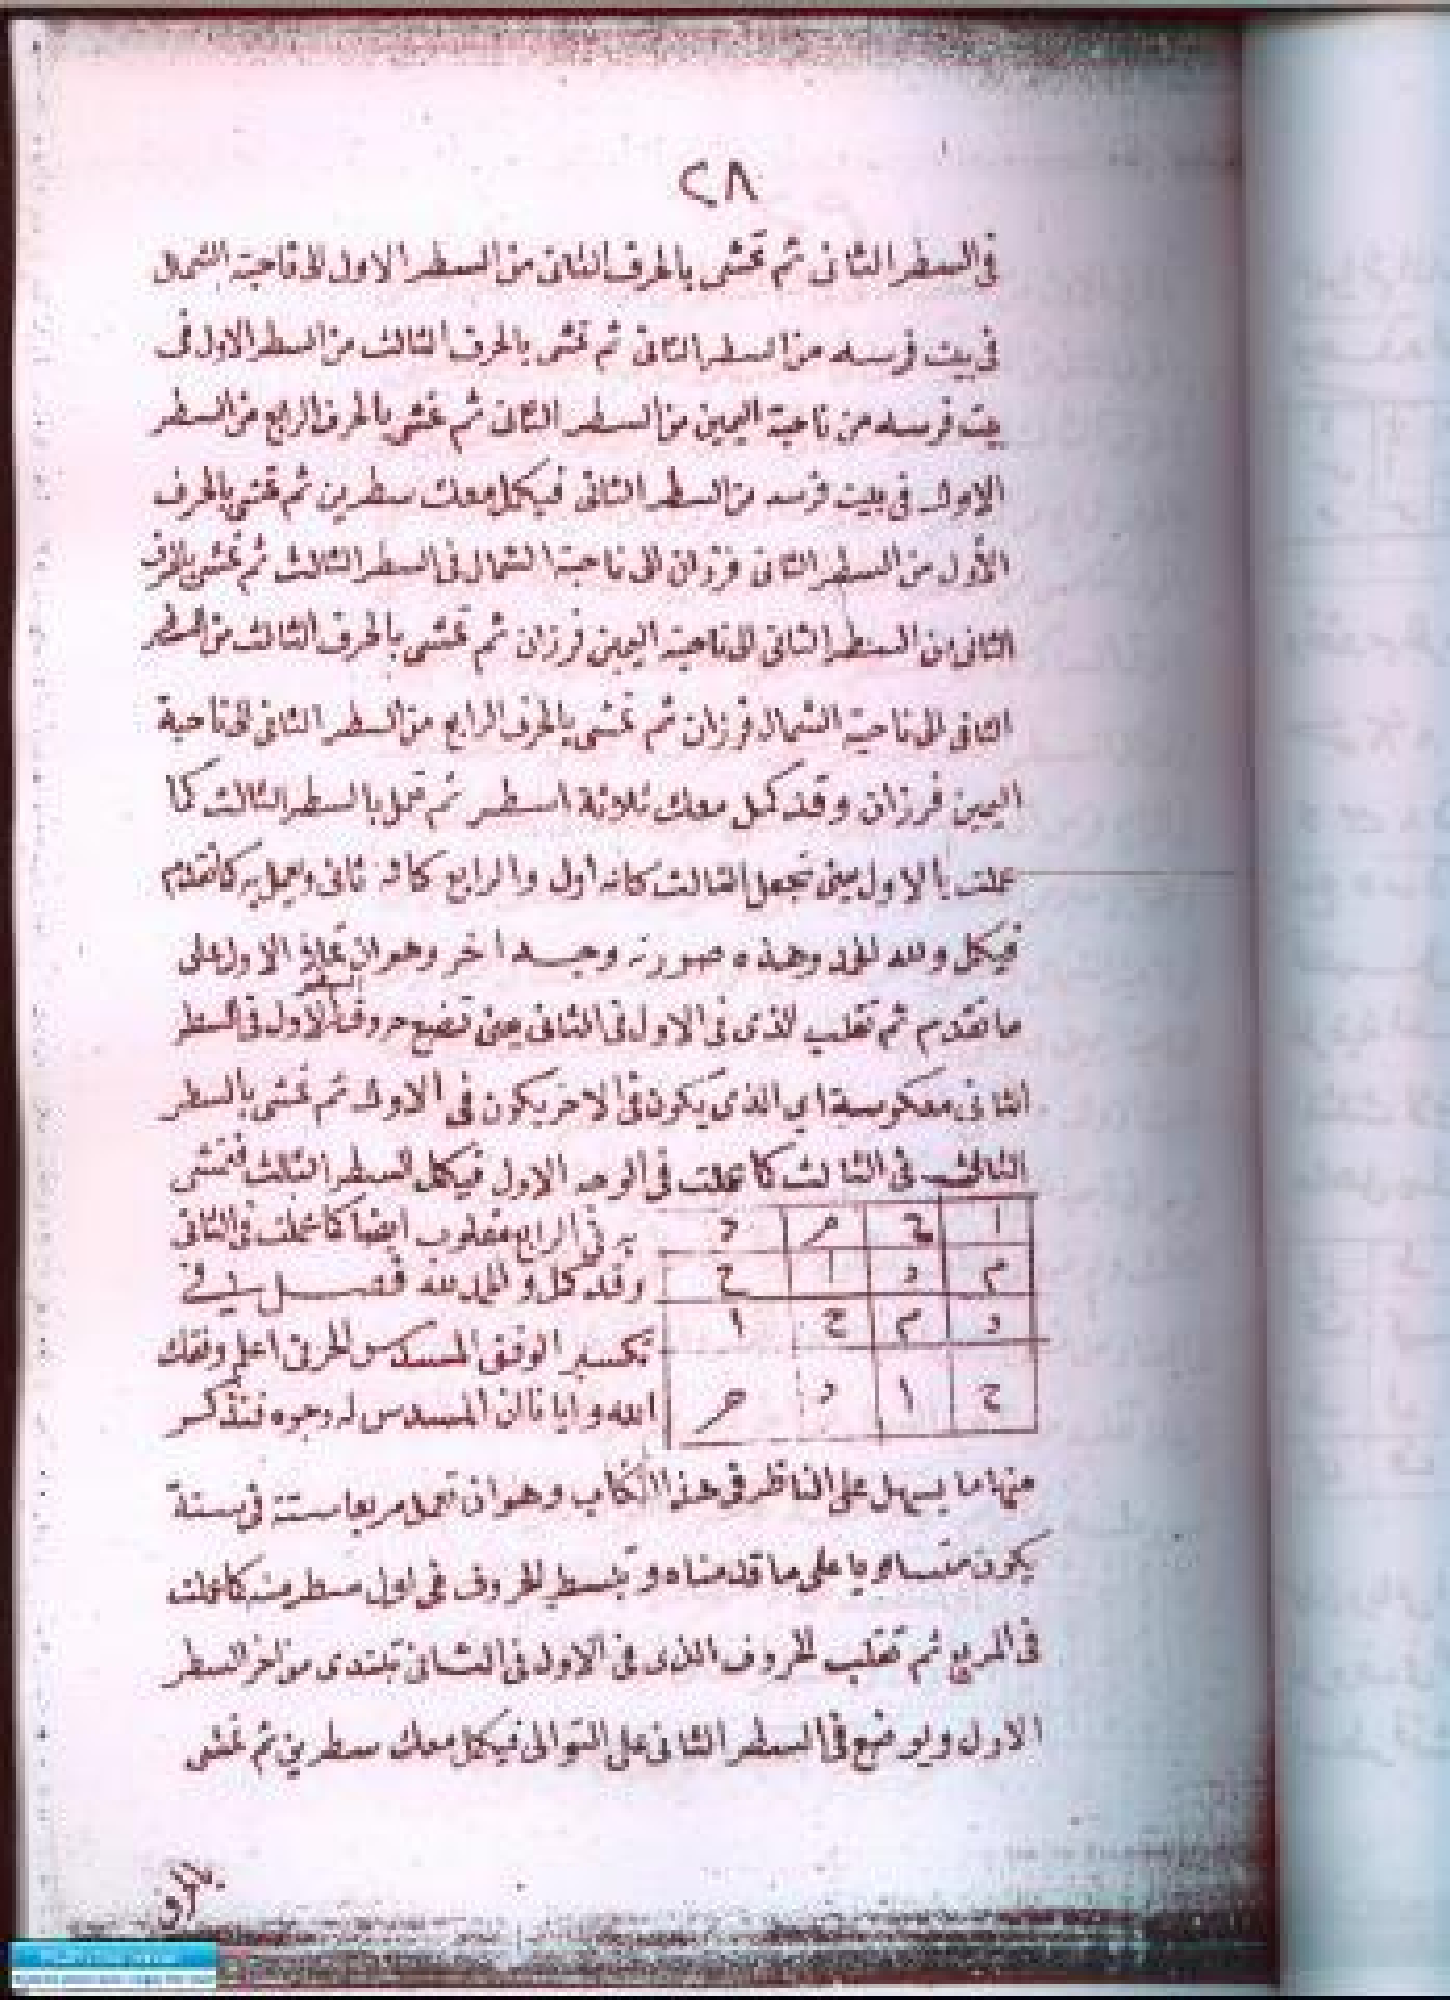 ٢٨
في السطر الثاني ثم تمشى بالحرف الثاني من السطر الاول الى ناحية الشمال
في بيت فرسه من السطر الثاني ثم تمشى بالحرف الثالث من السطر الاول في
بيت فرسه من ناحية اليمين من السطر الثاني ثم تمشى بالحرف الرابع من السطر
الاول في بيت فرسه من السطر الثاني فيكمل معك سطرين ثم تمشى بالحرف
الأول من السطر الثاني فرزان الى ناحية الشمال في السطر الثالث ثم تمشى بالحرف
الثاني من السطر الثاني الى ناحية اليمين فرزان ثم تمشى بالحرف الثالث من السطر
الثاني الى ناحية الشمال فرزان ثم تمشى بالحرف الرابع من السطر الثاني الى ناحية
اليمين فرزان وقد كمل معك ثلاثة اسطر ثم تعمل بالسطر الثالث كما
عملت بالاول يعنى تجعل الثالث كانه أول والرابع كانه ثانى وتعمل به كما تقدم
فيكمل ولله الحمد وهذه صورته وجه اخر وهو ان الاول على
ما تقدم ثم تقلب الذى فى الاول فى الثانى يعنى تضع حروف السطر الاول فى السطر
الثانى معكوسة اى الذى يكون فى الاخر يكون فى الاول ثم تمشى بالسطر
الثالث فى الثالث كما عملت فى الوجه الاول فيكمل السطر الثالث فتمشى
به فى الرابع مقلوب ايضا كما عملت فى الثانى
وقد كمل والحمد لله فصل فى
تكسير الوفق المسدس الحرفى اعلم وفقك
الله وايانا ان المسدس له وجوه فنذكر
ا ح م د
م د ا ح
د م ح ا
ح ا د م
منها ما يسهل على الناظر فى هذا الكتاب وهو ان تعمل مربعا ستة فى ستة
يكون متساويا على ما قدمناه وتبسط الحروف فى اول سطر منه كما عملت
فى المربع ثم تقلب الحروف الذى فى الاول فى الثانى تبتدى من اخر السطر
الاول ويوضع فى السطر الثانى على التوالى فيكمل معك سطرين ثم تمشى
بالحرف